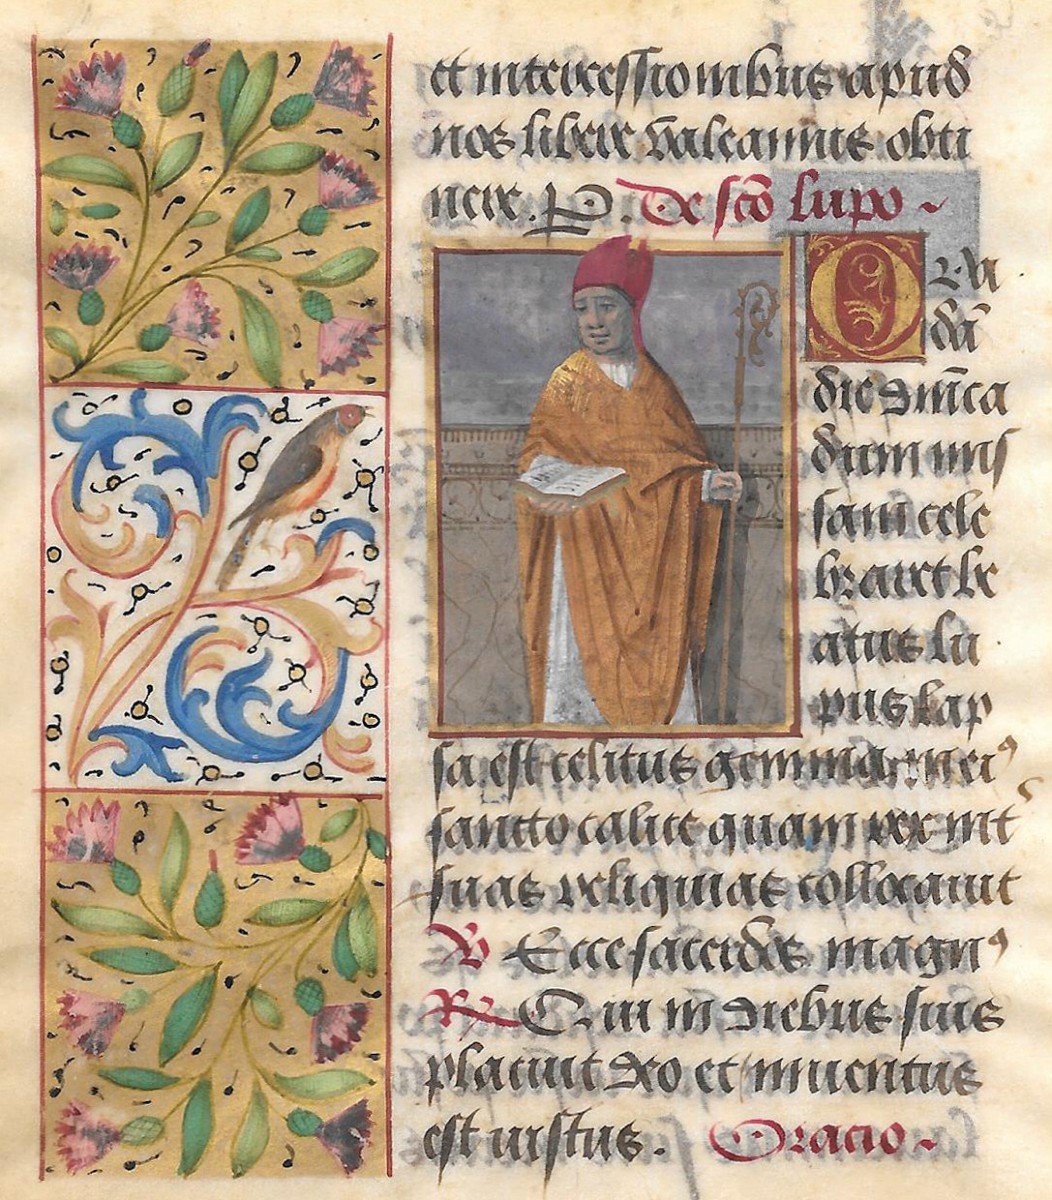 et intercessionibus apud
nos libere valeamus obti
nere. P. De scō lupo
dā
die dnīca
dum mis
sam cele
braret be
atus lu
pus lap
sa est celitus gemma in eiꝰ
sancto calice quam rex int
suas reliquias collocauit
V Ecce sacerdos magnꝰ
R Qui in diebus suis
placuit deo et inuentus
est iustus. Oracio